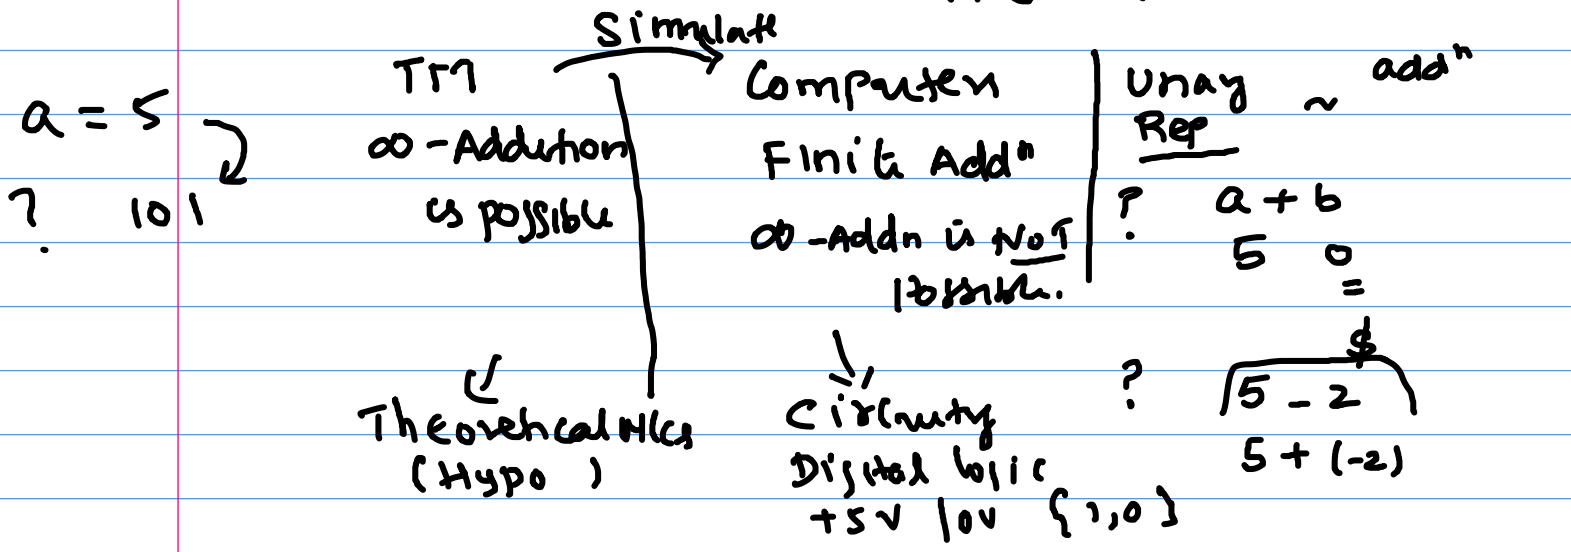 Simulate
a = 5
? 101
TM
∞ - Addition
is possible
Theoretical M/cs
(Hypo )
Computers
Finite Addⁿ
∞ - Addn is NOT
Possible.
Circuity
Digital logic
+5V / 0V {1,0}
Unary ~ addⁿ
Rep
? a + b
5 0
=
$
? 5 - 2
5 + (-2)